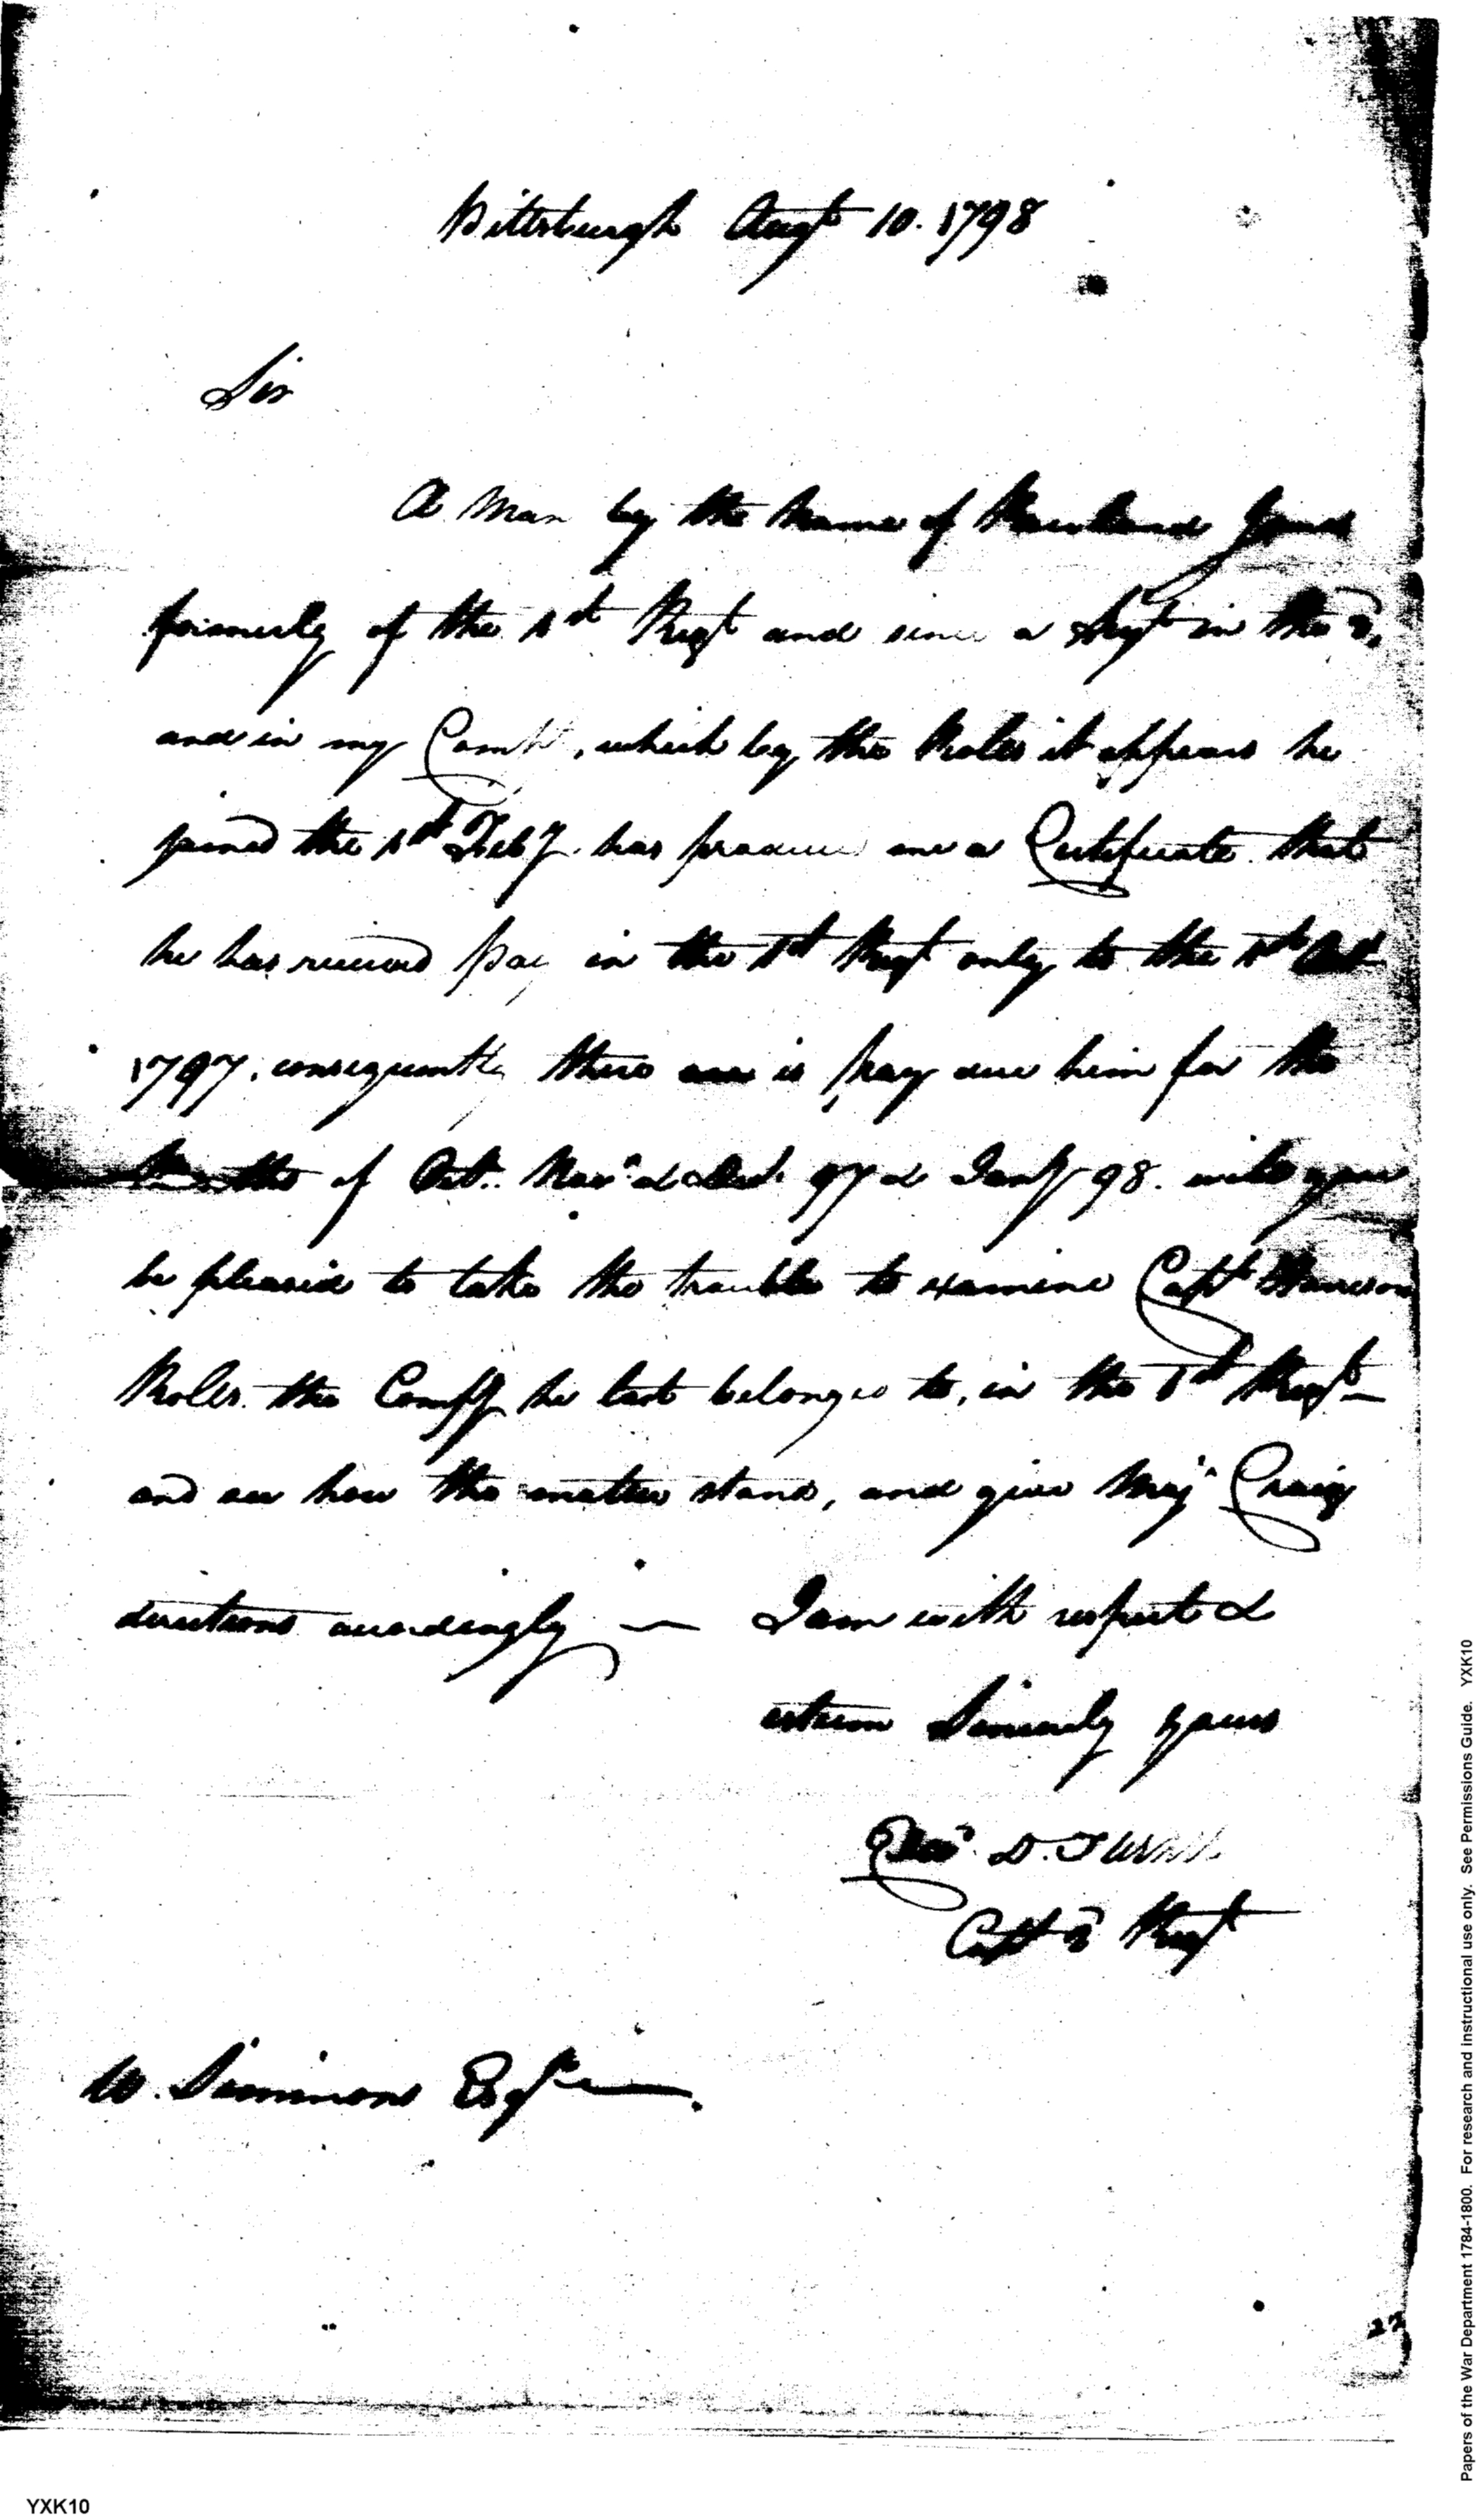 Pittsburgh Augt 10. 1798
Sir
A Man by the Name of Rowland Jones
formerly of the 1st Regt and since a Sergt in the 2d
and in my Comp, which by the Roles it appears he
joined the 1st Feby. has produced me a Certificate that
he has received pay in the 1st Regt only to the 1st Oct
1797, consequently there is pay due him for the
Months of Oct. Novr & Decr. 97 & Jany 98. will you
be pleased to take the trouble to examine Capt
Roles. the Compy he last belonged to, in the 1st Regt
and see how the matter stand, and give Majr Craig
directions accordingly — I am with respect &
esteem Sincerely yours
D. Turner
Capt 2d Regt
W. Simmons Esqr
22
YXK10
Papers of the War Department 1784-1800. For research and instructional use only. See Permissions Guide. YXK10